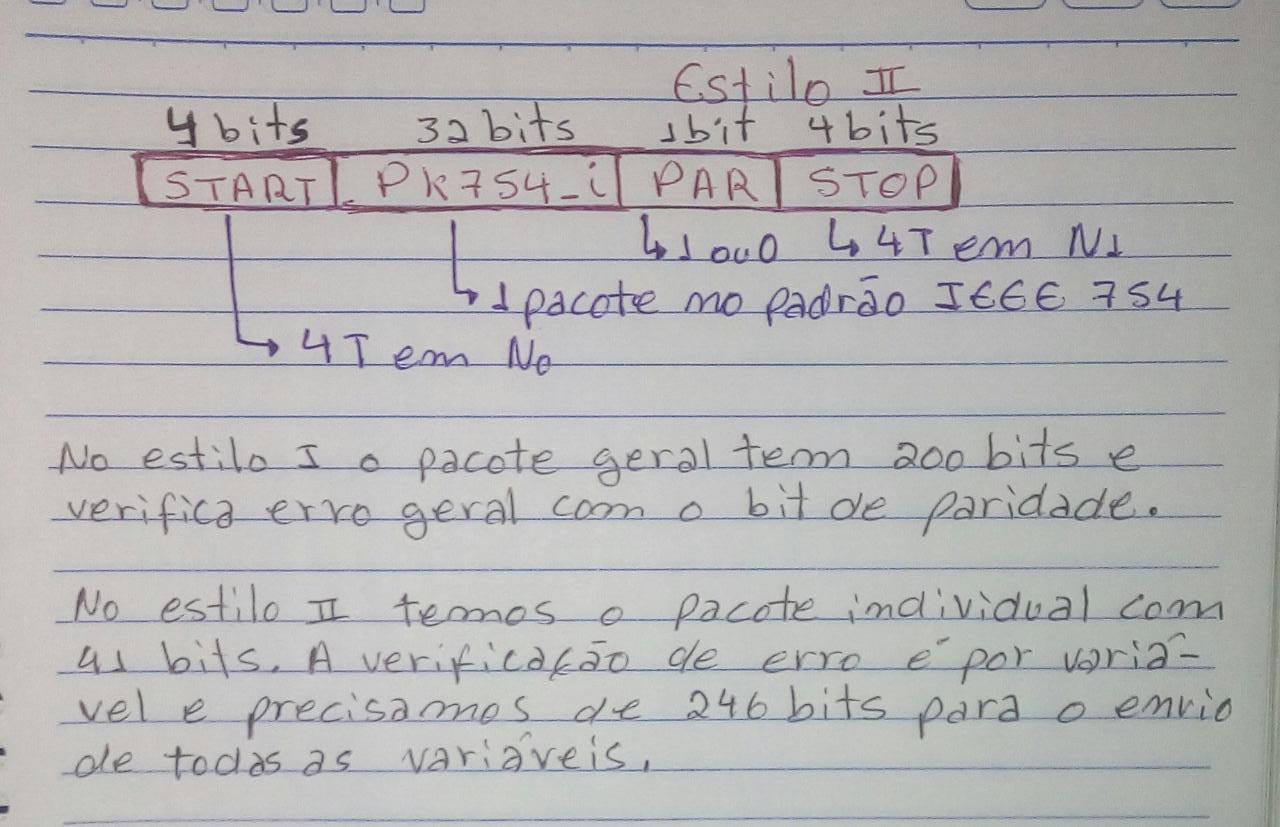 Estilo II
4 bits 32 bits 1bit 4 bits
START PK754_i PAR STOP
↳ 1 ou 0 ↳ 4T em N1
↳ 1 pacote no padrão IEEE 754
→ 4T em N0
No estilo I o pacote geral tem 200 bits e
verifica erro geral com o bit de paridade.
No estilo II temos o pacote individual com
41 bits. A verificação de erro é por variá-
vel e precisamos de 246 bits para o envio
de todas as variáveis.